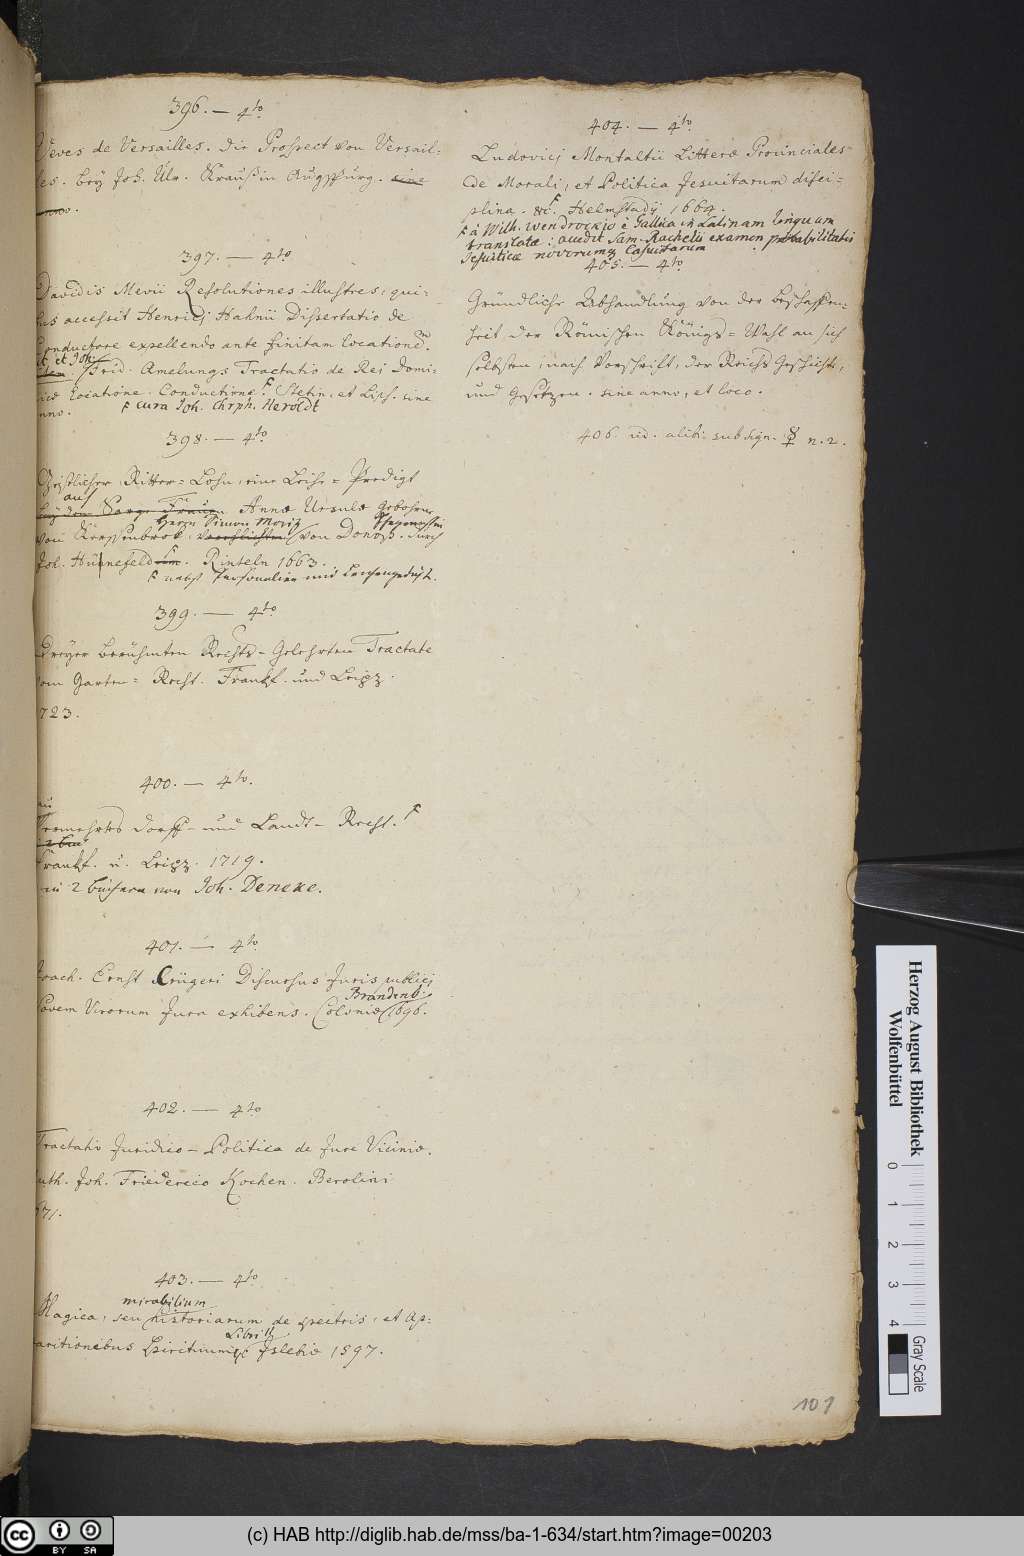 396. — 4to
Veues de Versailles. Die Prospect von Versail-
les. bey Joh. Ulr. Krauß in Augspurg. sine
anno.
397. — 4to
Davidis Mevii Resolutiones illustres, qui-
bus accessit Henrici Hahnii Dissertatio de
Conductore expellendo ante finitam locationem.
it. et Joh.
Frid. Amelungs Tractatio de Rei Domi-
nicæ locatione. Conductione. Stetin, et Lips. sine
anno. cura Joh. Chrph. Heroldt
398. — 4to
Geistlicher Ritter-Lohn, eine Leich-Predigt
auf
bey dem Sarge Frauen Annæ Ursulæ gebohrne
Herrn Simon Moritz
von Kerssenbrok, von Donop. durch
Joh. Hünnefeld. Rinteln 1663.
nebst Personalien und Leichengedicht.
399. — 4to
Dreyer berühmten Rechts-Gelehrten Tractate
vom Garten-Recht. Franckf. und Leipz.
1723.
400. — 4to.
Vermehrtes Dorff- und Landt-Recht.
Franckf. u. Leipz. 1719.
in 2 büchern von Joh. Deneke.
401. — 4to
Joach. Ernst Crügeri Discursus Juris publici
Brandenb.
Novem Virorum Jura exhibens. Coloniæ 1696.
402. — 4to
Tractatio Juridico-Politica de Jure Viciniæ.
auth. Joh. Friederico Kochen. Berolini
1671.
403. — 4to
mirabilium
Magica, seu historiarum de spectris, et Ap-
Libri II
paritionibus Spirituum. Islebiæ 1597.
404. — 4to.
Ludovici Montaltii Litteræ Provinciales
de Morali, et Politica Jesuitarum disci-
plina. &c. Helmstadij 1664.
à Wilh. Wendrockio è Gallica in Latinam linguam
translatæ: accedit Sam. Rachelii examen probabilitatis
Jesuiticæ novorumq Casuitarum
405. — 4to
Gründliche Abhandlung von der Beschaffen-
heit der Römischen Königs-Wahl an sich
selbsten, nach Vorschrift, der Reichs Geschicht,
und Gesetzen. sine anno, et loco.
406. vid. alibi subsign. ♀ n. 2.
101
Herzog August Bibliothek
Wolfenbüttel
0 1 2 3 4
Gray Scale
(c) HAB http://diglib.hab.de/mss/ba-1-634/start.htm?image=00203
cc BY SA